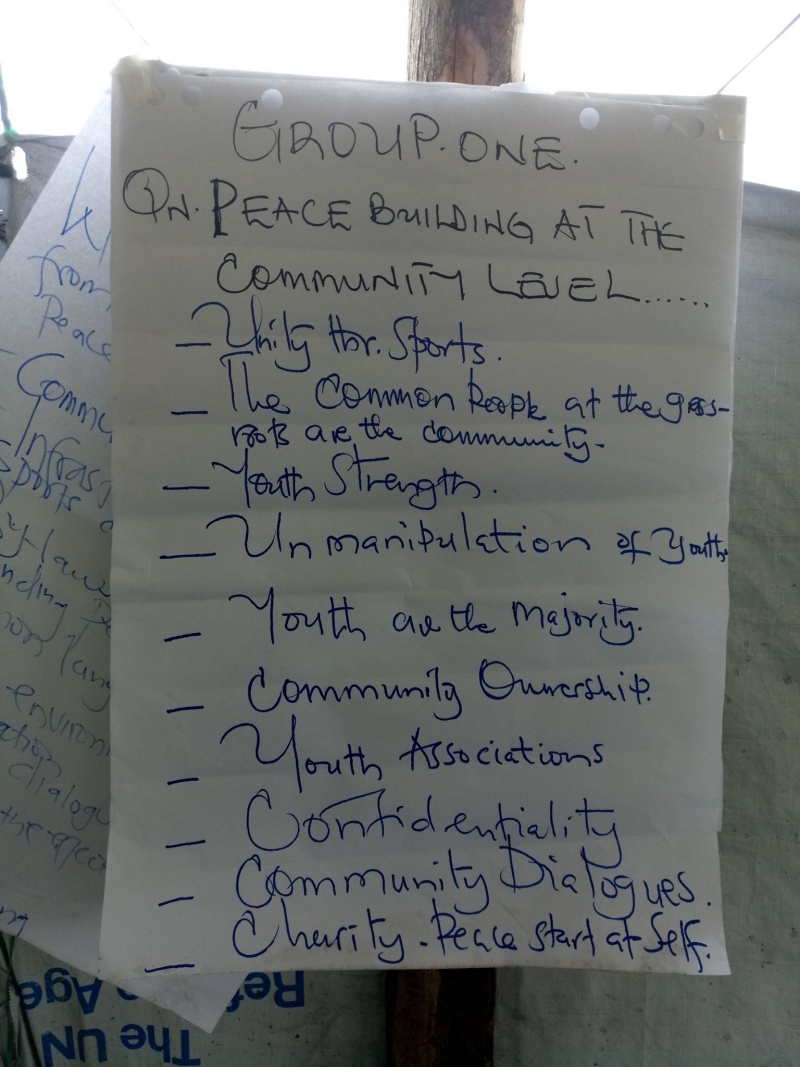 GROUP. ONE.
QN. PEACE BUILDING AT THE
COMMUNITY LEVEL......
- Unity thr. Sports.
- The Common People at the grass-
roots are the community.
- Youth Strength.
- Unmanipulation of Youth.
- Youth are the Majority.
- Community Ownership.
- Youth Associations
- Confidentiality
- Community Dialogues.
- Charity. Peace start at Self.
from
Peace
Infras
Sports
environ
dialogu
The UN